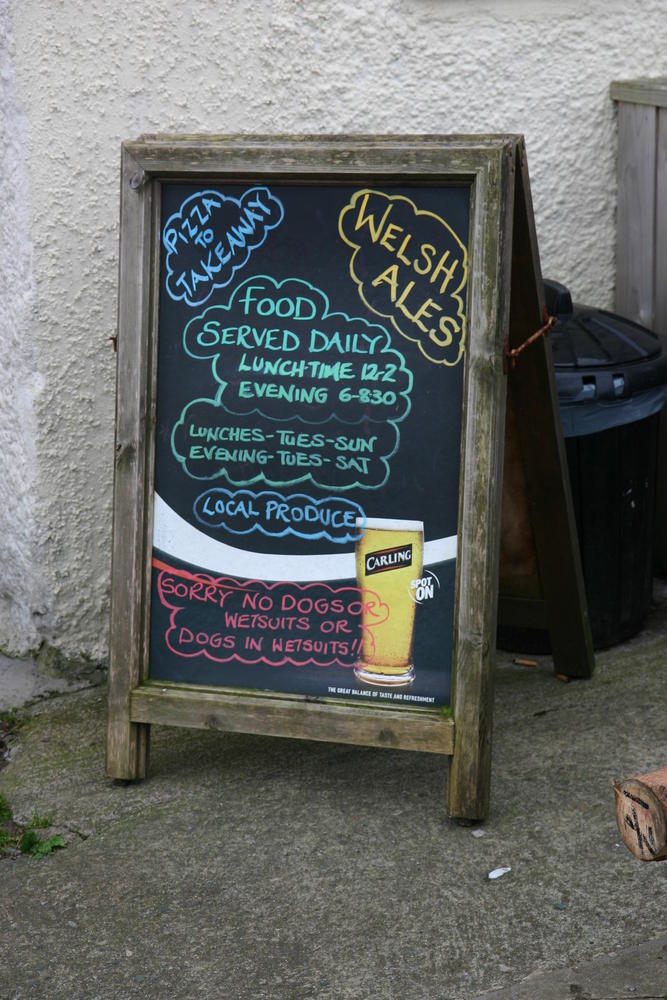 PIZZA
TO
TAKEAWAY
WELSH
ALES
FOOD
SERVED DAILY
LUNCHTIME 12-2
EVENING 6-830
LUNCHES-TUES-SUN
EVENING-TUES-SAT
LOCAL PRODUCE
CARLING
SPOT
ON
SORRY NO DOGS OR
WETSUITS OR
DOGS IN WETSUITS!!
THE GREAT BALANCE OF TASTE AND REFRESHMENT